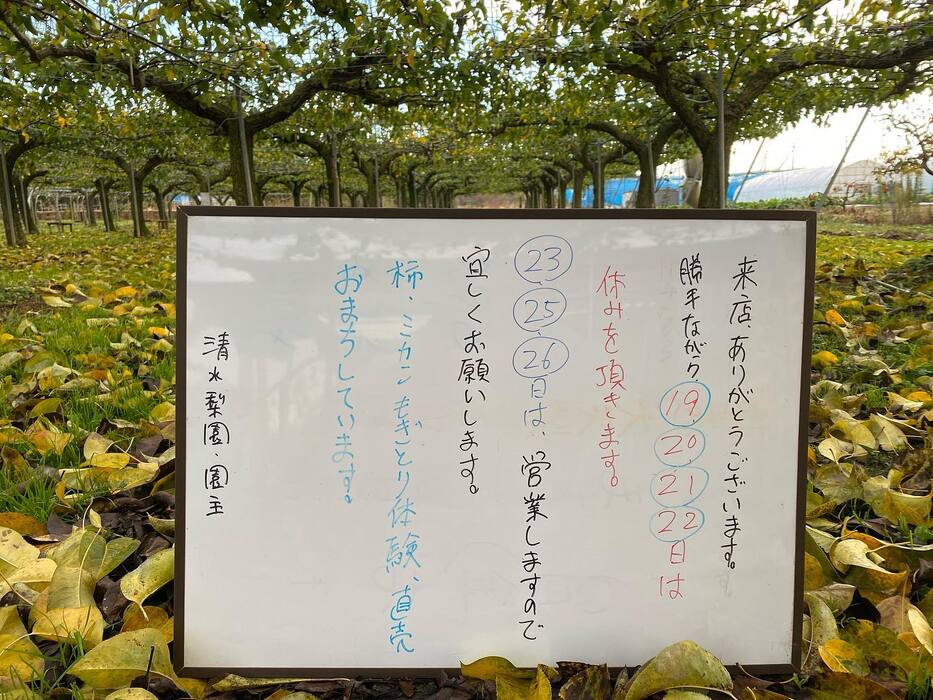 来店、ありがとうございます。
勝手ながら、19 20 21 22日は
休みを頂きます。
23、25、26日は、営業しますので
宜しくお願いします。
柿、ミカンもぎとり体験、直売
おまちしています。
清水梨園・園主